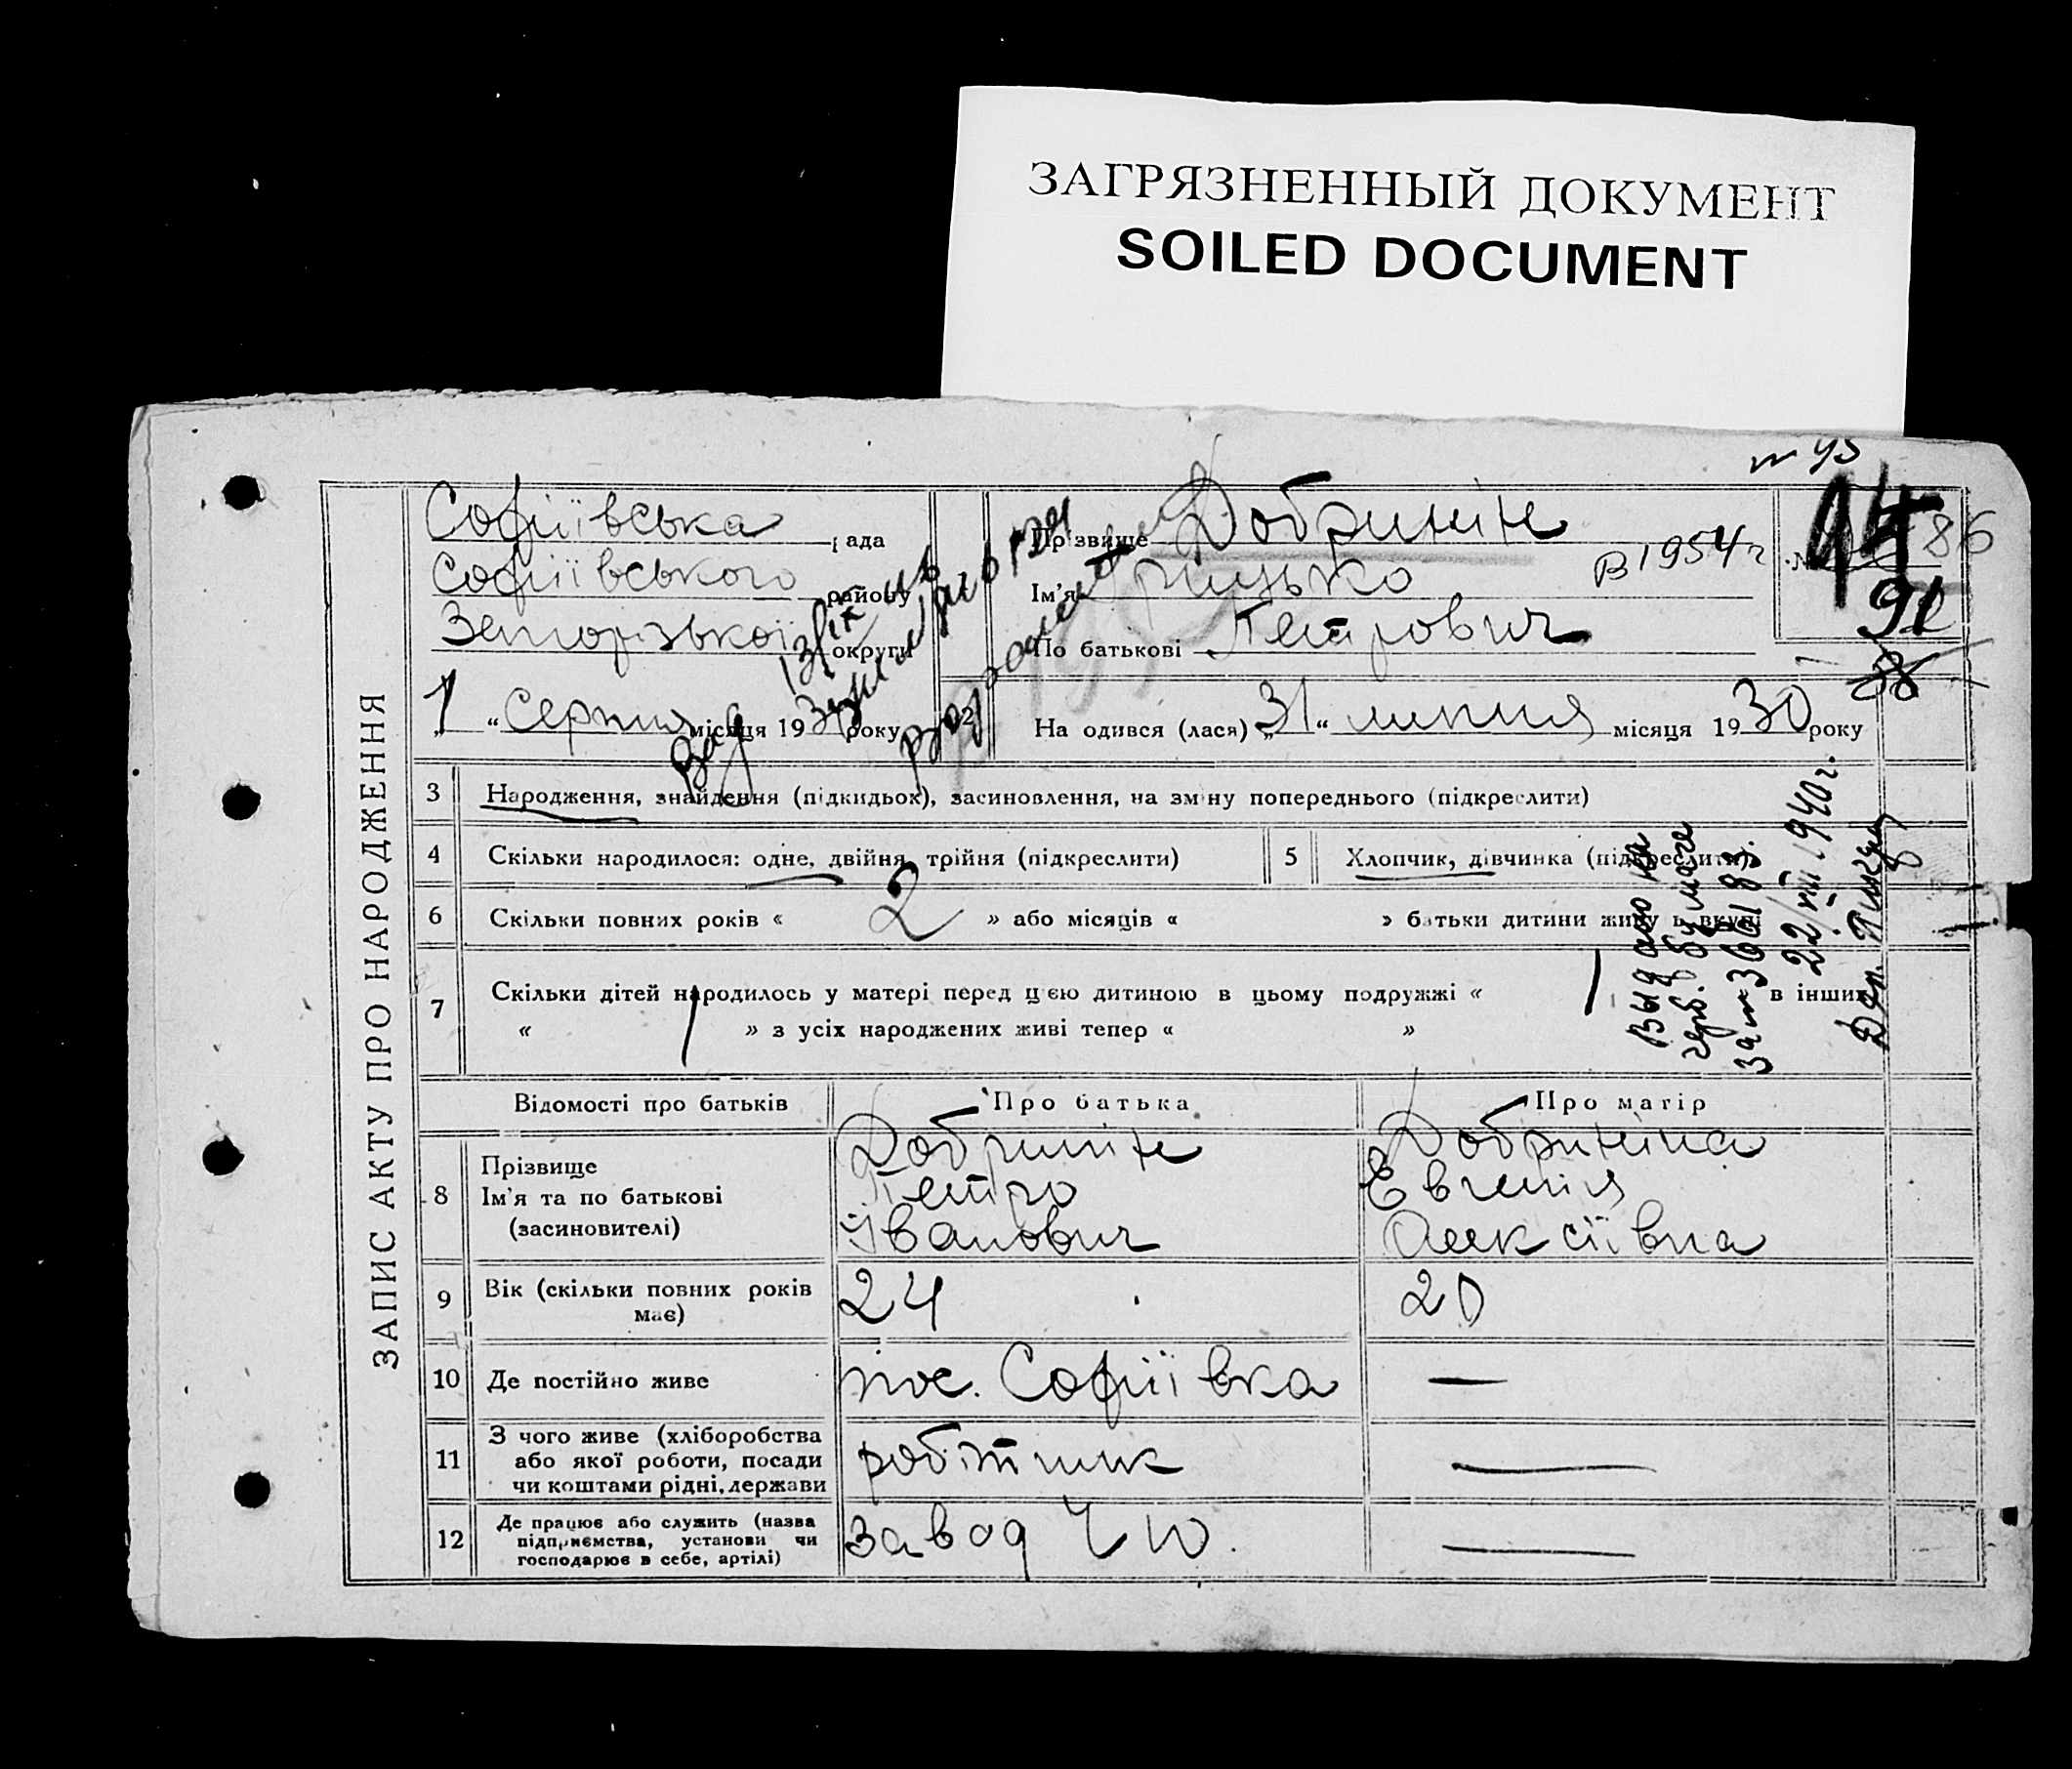 ЗАГРЯЗНЕННЫЙ ДОКУМЕНТ
SOILED DOCUMENT
ЗАПИС АКТУ ПРО НАРОДЖЕННЯ
Софіївська рада
Софіївського району
Запорізької округи
"1" серпня місяця 1930 року
2
Прізвище Добринін
Ім'я Грицько
По батькові Петрович
в 1954 г
№ 86
91
На одився (лася) "31" липня місяця 1930 року
3 Народження, знайдення (підкидьок), засиновлення, на зміну попереднього (підкреслити)
4 Скільки народилося: одне, двійня, трійня (підкреслити)
5 Хлопчик, дівчинка (підкреслити)
6 Скільки повних років « 2 » або місяців « » батьки дитини живуть вкупі
7 Скільки дітей народилось у матері перед цією дитиною в цьому подружжі « 1 в інших
« 1 » з усіх народжених живі тепер « »
Выдано на
герб. бумаге
за № 366183
22/VIII 1940 г.
Відомості про батьків Про батька Про матір
8 Прізвище
Ім'я та по батькові
(засиновителі)
Добринін
Петро
Іванович
Добриніна
Евгенія
Олексіївна
9 Вік (скільки повних років має) 24 20
10 Де постійно живе пос. Софіївка —
11 З чого живе (хліборобства
або якої роботи, посади
чи коштами рідні, держави
робітник —
12 Де працює або служить (назва
підприємства, установи чи
господарює в себе, артілі)
завод —